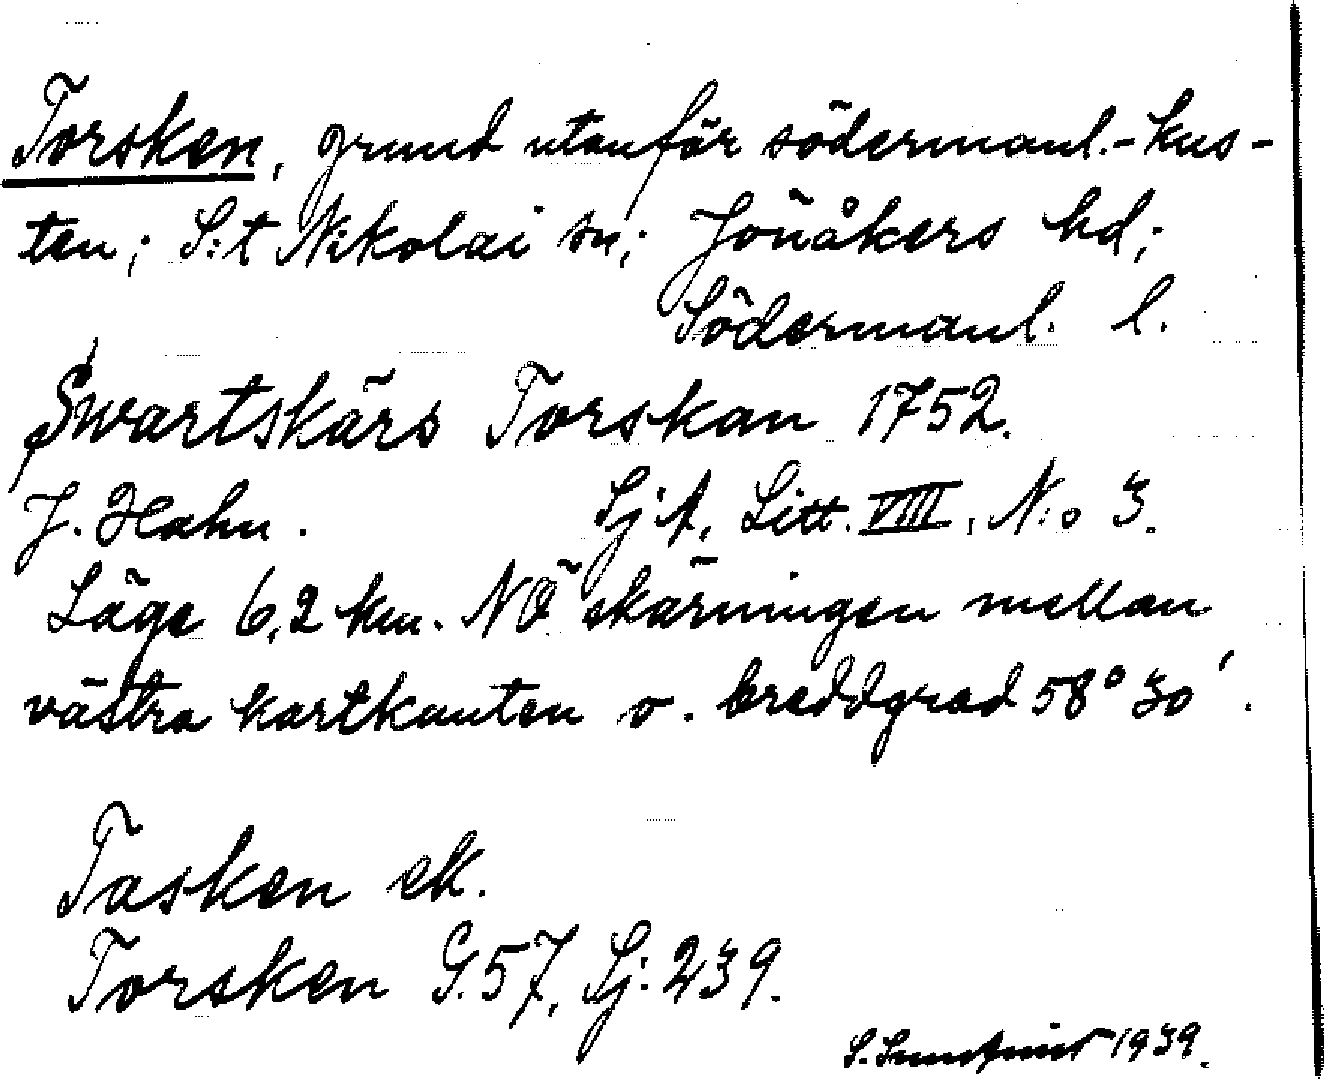 Torsken, grund utanför södermanl.-kus-
ten; S:t Nikolai sn; Jönåkers hd;
Södermanl. l.
Swartskärs Torskan 1752.
J. Hahn. Sjk, Litt. VIII, N:o 3.
Läge 6,2 km. NÖ skärningen mellan
västra kartkanten o. breddgrad 58° 30'.
Tasken ek.
Torsken G.57, Sj: 239.
S. 1939.